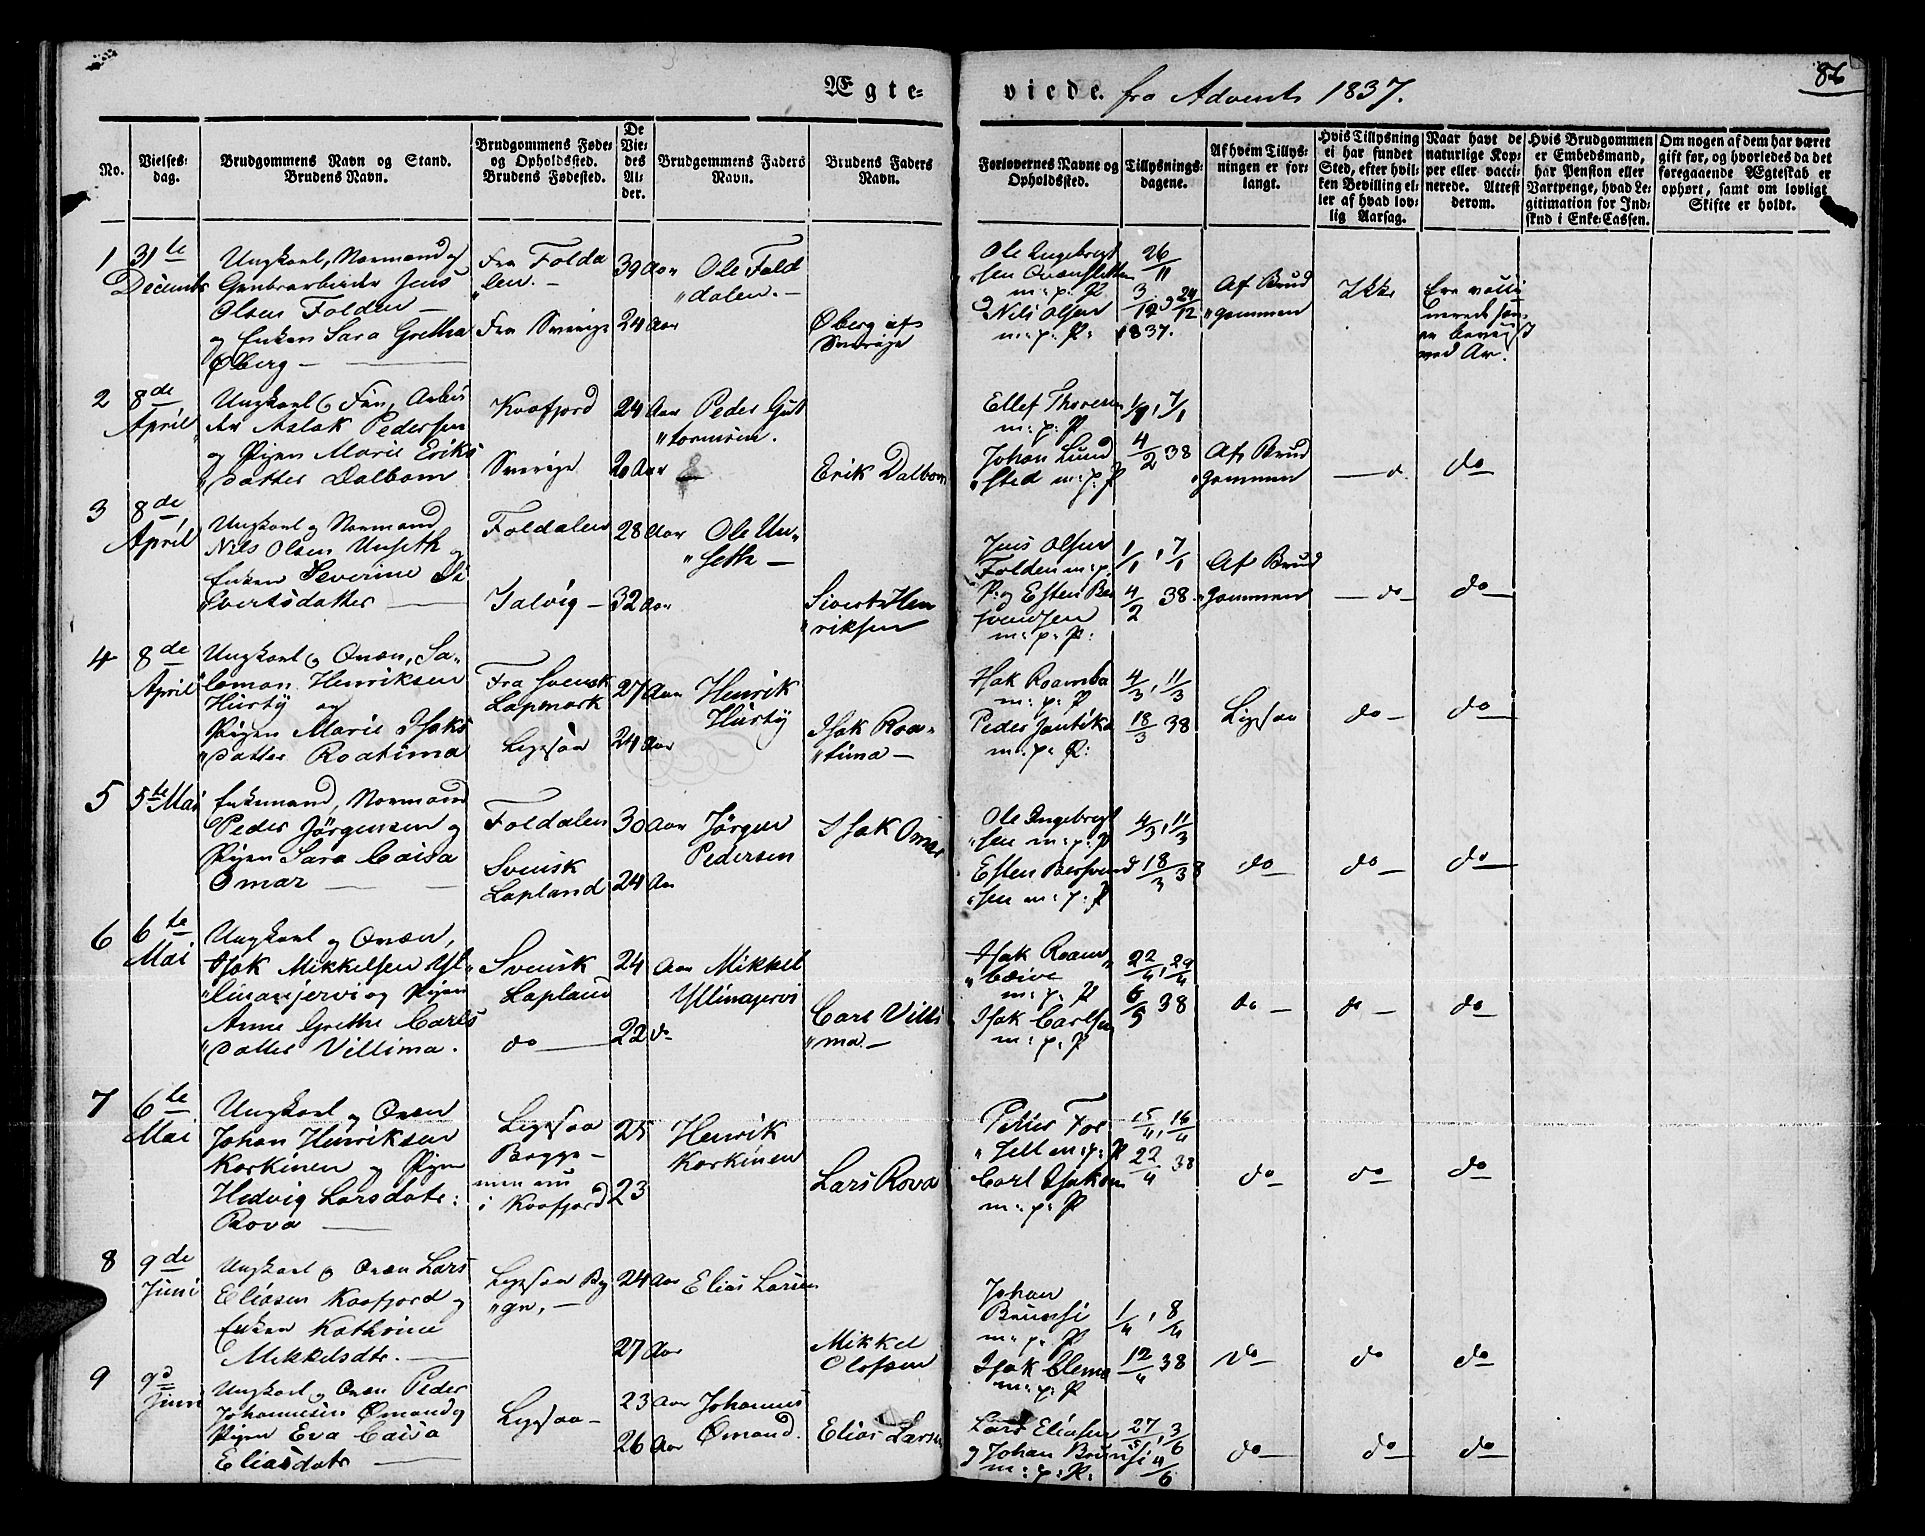 Ægte-
viede. fra Advent 1837.
86
No.
Vielses-
dag.
Brudgommens Navn og Stand.
Brudens Navn.
Brudgommens Føde-
og Opholdssted.
Brudens Fødested.
De
Vie-
des
Al-
der.
Brudgommens Faders
Navn.
Brudens Faders
Navn.
Forlovernes Navne og
Opholdssted.
Tillysnings-
dagene.
Af hvem Tillys-
ningen er for-
langt.
Hvis Tillysning
ei har fundet
Sted, efter hvil-
ken Bevilling el-
ler af hvad lov-
lig Aarsag.
Naar havt de
naturlige Kop-
per eller vacci-
nerede. Attest
derom.
Hvis Brudgommen
er Embedsmand,
har Pension eller
Vartpenge, hvad Le-
gitimation for Ind-
skud i Enke-Cassen.
Om nogen af dem har været
gift før, og hvorledes da det
foregaaende Ægteskab er
ophørt, samt om lovligt
Skifte er holdt.
1
31te
Decembr
Ungkarl, Normand og
Grubearbeider Jens
Olsen Folden —
og Enken Sara Gretha
Øberg —
Fra Folda
"len. —
Fra Sverige
39 Aar
24 Aar
Ole Fold
"dalen. —
Øberg af
Sverige
Ole Ingebrigt
"sen Qvænsletten
m: p: P.
og Nils Olsen
m: p: P:
26/11
3/12 og 24/12
1837.
Af Brud
"gommen
Ikke
Ere vacci
nerede som
er beviist
ved Att.
2
8de
April
Ungkarl og Aslak Pedersen
og Pigen Marie Eriks
"datter Dalbom
Kaafjord
Sverige
24 Aar
20 Aar
Peder Gut
"tormsen.
Erik Dalbom
Ellef Thoresen
m: p: P
Johan Lund
"sted m: p: P
1/1, 7/1
4/2 38
Af Brud
"gommen
— do
do
3
8de
April
Ungkarl og Normand
Nils Olsen Unseth og
Enken Severine Si
"vertsdatter —
Foldalen
Talvig —
28 Aar
32 Aar
Ole Un-
"seth —
Sivert Hen
"riksen
Jens Olsen
Folden m: p:
P: og Esten Ber
"svendsen
m: p: P:
1/1, 7/1
4/2 38.
Af Brud
"gommen
— do —
do
4
8de
April
Ungkarl og Qvæn, Sa-
"lomon Henriksen
Hurty og
Pigen Marie Isaks
"datter Roatima
Fra Svensk
Lapmark
27 Aar
24 Aar
Henrik
Hurty
Isak Roa-
"tima —
Isak
m: p: P
Peder Jantika
m: p: P:
4/3, 11/3
18/3 38
do —
do
5
5te Mai
Enkemand, Normand
Peder Jørgensen og
Pigen Sara Caisa
Omar — —
Foldalen
Svensk
Lapland
30 Aar
24 Aar
Jørgen
Pedersen
Isak Omar
Ole Ingebrigt
"sen m: p: P
Esten Bersvend
"sen m: p: P
4/3, 11/3
18/3 38
do
do
do
6
6te
Mai
Ungkarl og Qvæn,
Isak Mikkelsen Yl-
"linajervi og Pigen
Anne Grethe Carls
"datter Villima.
Svensk
Lapland
do —
24 Aar
22 do
Mikkel
Yllinajervi
Carl Villi
"ma. —
Isak
m: p: P
Isak Carlsen
m: p: P
22/4, 29/4
6/5 38
do —
do —
do
7
6te
Mai
Ungkarl og Qvæn
Johan Henriksen
Karkinen og Pigen
Hedvig Larsdatr:
Rova —
i Kaafjord
25
23
Henrik
Karkinen
Lars Rova
m: p: P
Carl Isaksen
m: p: P
15/4, 16/4
22/4 38
do
do
do
8
9de
Juni
Ungkarl og Qvæn Lars
Eliasen Kaafjord og
Enken Kathrine
Mikkelsdtr. —
24 Aar
27 Aar
Elias Larsen
Mikkel
Olofsen
Johan
Brunsi
m: p: P
Isak Clema
m: p: P
1/4, 8/4
12/4 38
do
do
do
9
9de
Juni
Ungkarl og Qvæn Peder
Johannesen Ømand og
Pigen Eva Caisa
Eliasdatr —
23 Aar
26 Aar
Johannes
Ømand.
Elias Larsen
Lars Eliasen
og Johan Brunsi
m: p: P.
27/5, 3/6
4/6
do
do
do